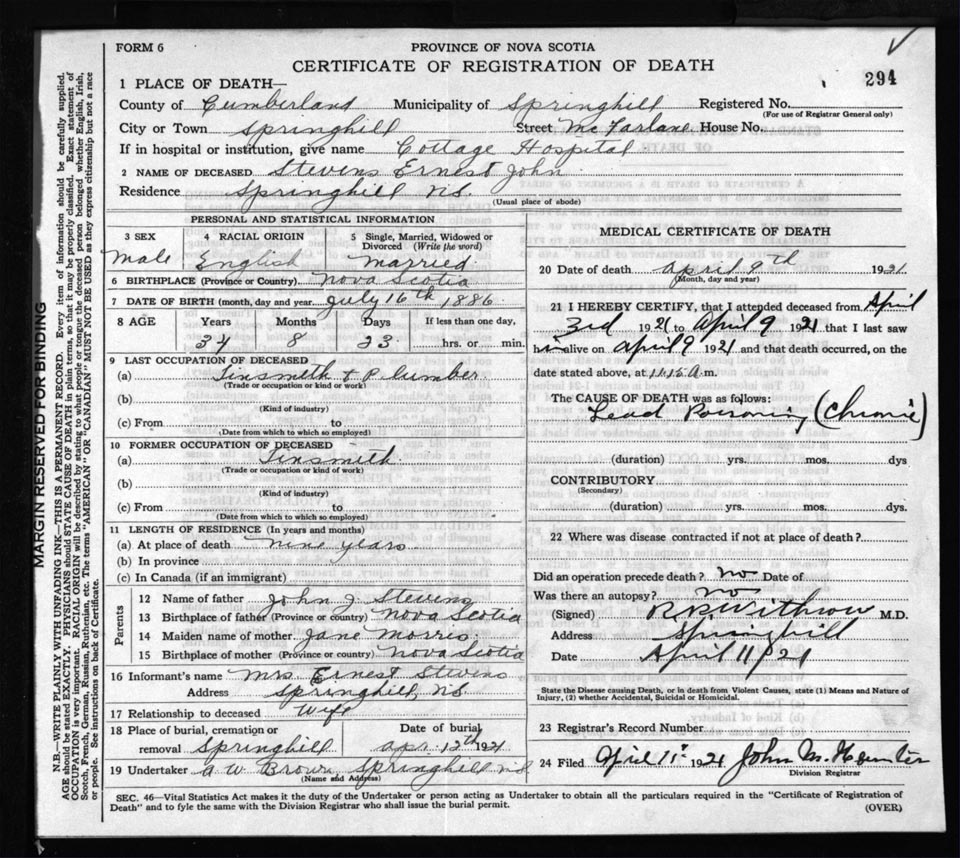 FORM 6
PROVINCE OF NOVA SCOTIA
CERTIFICATE OF REGISTRATION OF DEATH
294
1 PLACE OF DEATH—
County of Cumberland Municipality of Springhill Registered No.
(For use of Registrar General only)
City or Town Springhill Street McFarlane House No.
If in hospital or institution, give name Cottage Hospital
2 NAME OF DECEASED Stevens Ernest John
Residence Springhill N.S.
(Usual place of abode)
PERSONAL AND STATISTICAL INFORMATION
3 SEX 4 RACIAL ORIGIN 5 Single, Married, Widowed or Divorced (Write the word)
Male English Married
6 BIRTHPLACE (Province or Country) Nova Scotia
7 DATE OF BIRTH (month, day and year July 16th 1886
8 AGE Years Months Days If less than one day,
34 8 23 hrs. or min.
9 LAST OCCUPATION OF DECEASED
(a) Tinsmith & Plumber
(Trade or occupation or kind of work)
(b)
(Kind of industry)
(c) From to
(Date from which to which so employed)
10 FORMER OCCUPATION OF DECEASED
(a) Tinsmith
(Trade or occupation or kind of work)
(b)
(Kind of industry)
(c) From to
(Date from which to which so employed)
11 LENGTH OF RESIDENCE (In years and months)
(a) At place of death nine years
(b) In province
(c) In Canada (if an immigrant)
Parents
12 Name of father John J Stevens
13 Birthplace of father (Province or country) Nova Scotia
14 Maiden name of mother Jane Morris
15 Birthplace of mother (Province or country) Nova Scotia
16 Informant's name Mrs Ernest Stevens
Address Springhill, N.S.
17 Relationship to deceased Wife
18 Place of burial, cremation or removal Springhill Date of burial Apr. 12th 1921
19 Undertaker A W Brown, Springhill N.S.
(Name and Address)
MEDICAL CERTIFICATE OF DEATH
20 Date of death April 9th 1921
(Month, day and year)
21 I HEREBY CERTIFY, that I attended deceased from April
3rd 1921 to April 9 1921 that I last saw
him alive on April 9 1921 and that death occurred, on the
date stated above, at 11.15 A.m.
The CAUSE OF DEATH was as follows:
Lead Poisoning (Chronic)
(duration) yrs. mos. dys
CONTRIBUTORY
(Secondary)
(duration) yrs. mos. dys.
22 Where was disease contracted if not at place of death?
Did an operation precede death? no Date of
Was there an autopsy? no
(Signed) R R Withrow M.D.
Address Springhill
Date April 11/21
State the Disease causing Death, or in death from Violent Causes, state (1) Means and Nature of
Injury, (2) whether Accidental, Suicidal or Homicidal.
23 Registrar's Record Number
24 Filed April 11th 1921 John M. Hunter
Division Registrar
SEC. 46—Vital Statistics Act makes it the duty of the Undertaker or person acting as Undertaker to obtain all the particulars required in the "Certificate of Registration of
Death" and to fyle the same with the Division Registrar who shall issue the burial permit.
(OVER)
MARGIN RESERVED FOR BINDING
N.B.—WRITE PLAINLY WITH UNFADING INK—THIS IS A PERMANENT RECORD. Every item of information should be carefully supplied.
AGE should be stated EXACTLY. PHYSICIANS should STATE CAUSE OF DEATH in plain terms, so that it may be properly classified. Exact statement of
OCCUPATION is very important. RACIAL ORIGIN will be described by stating to what people or tongue the deceased person belonged whether English, Irish,
Scotch, French, German, Russian, Ruthenian, etc. The terms "AMERICAN" OR "CANADIAN" MUST NOT BE USED as they express citizenship but not a race
or people. See instructions on back of Certificate.